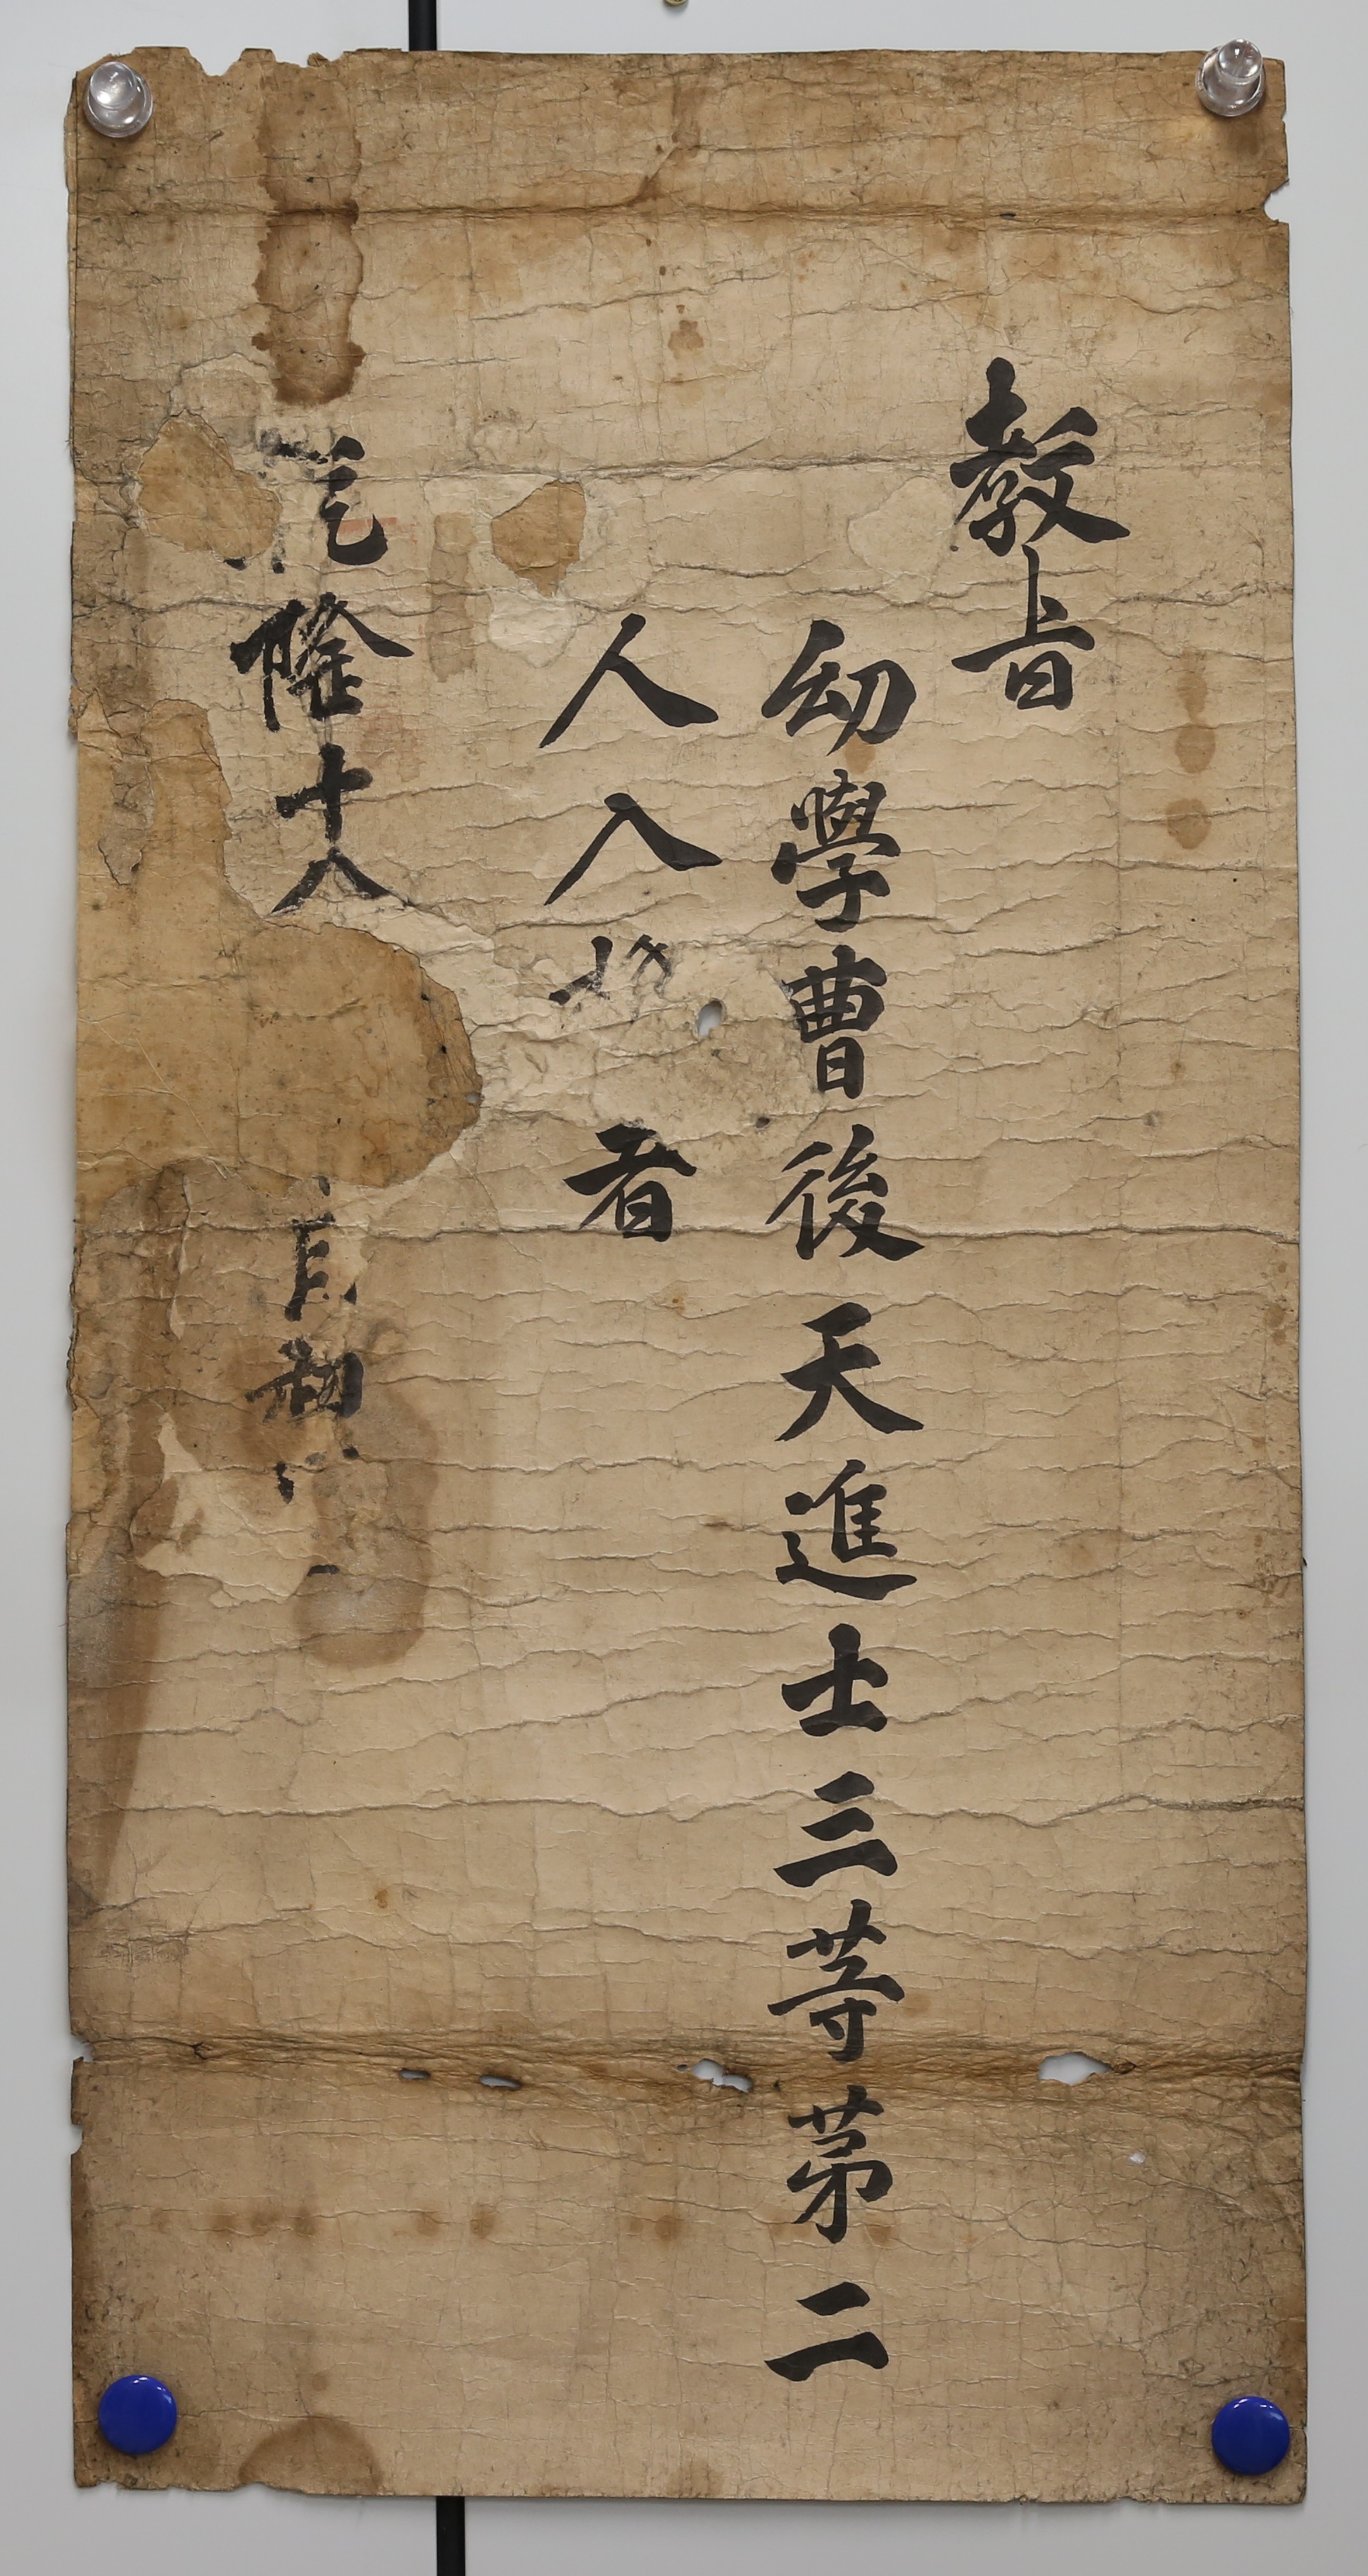 教旨
幼學曹後天進士三等第二
人入格者
乾隆十八 月初